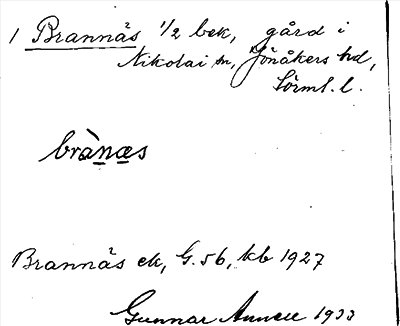 1 Brannäs 1/2 bek, gård i
Nikolai sn, Jönåkers hd,
Sörml. l.
brànæs
Brannäs ek, G. 56, kb 1927
Gunnar 1933